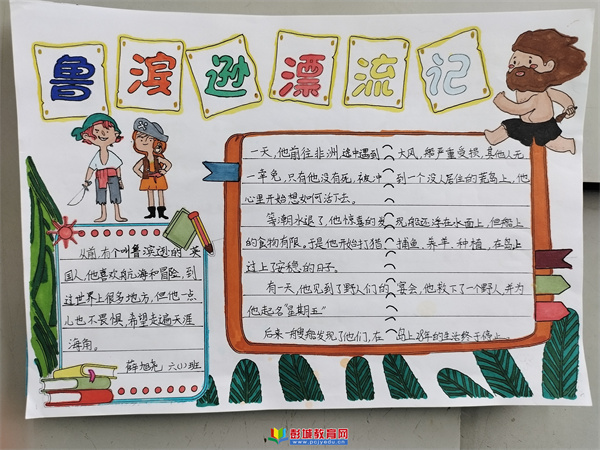 鲁滨逊漂流记
一天，他前往非洲，途中遇到大风，船严重受损，其他人无
一幸免，只有他没有死，被冲到一个没人居住的荒岛上，他
心里开始想如何活下去。
等潮水退了，他惊喜的发现，船还浮在水面上，但船上
的食物有限。于是他开始打猎、捕鱼、养羊、种植，在岛上
过上了安稳的日子。
有一天，他见到了野人们的宴会，他救下了一个野人并为
他起名“星期五”
后来一艘船发现了他们，在岛上28年的生活终于停止。
从前，有个叫鲁滨逊的英
国人，他喜欢航海和冒险，到
过世界上很多地方，但他一点
儿也不畏惧，希望走遍天涯
海角。
薛旭尧 六(1)班
彭城教育网
www.pcjyedu.cn